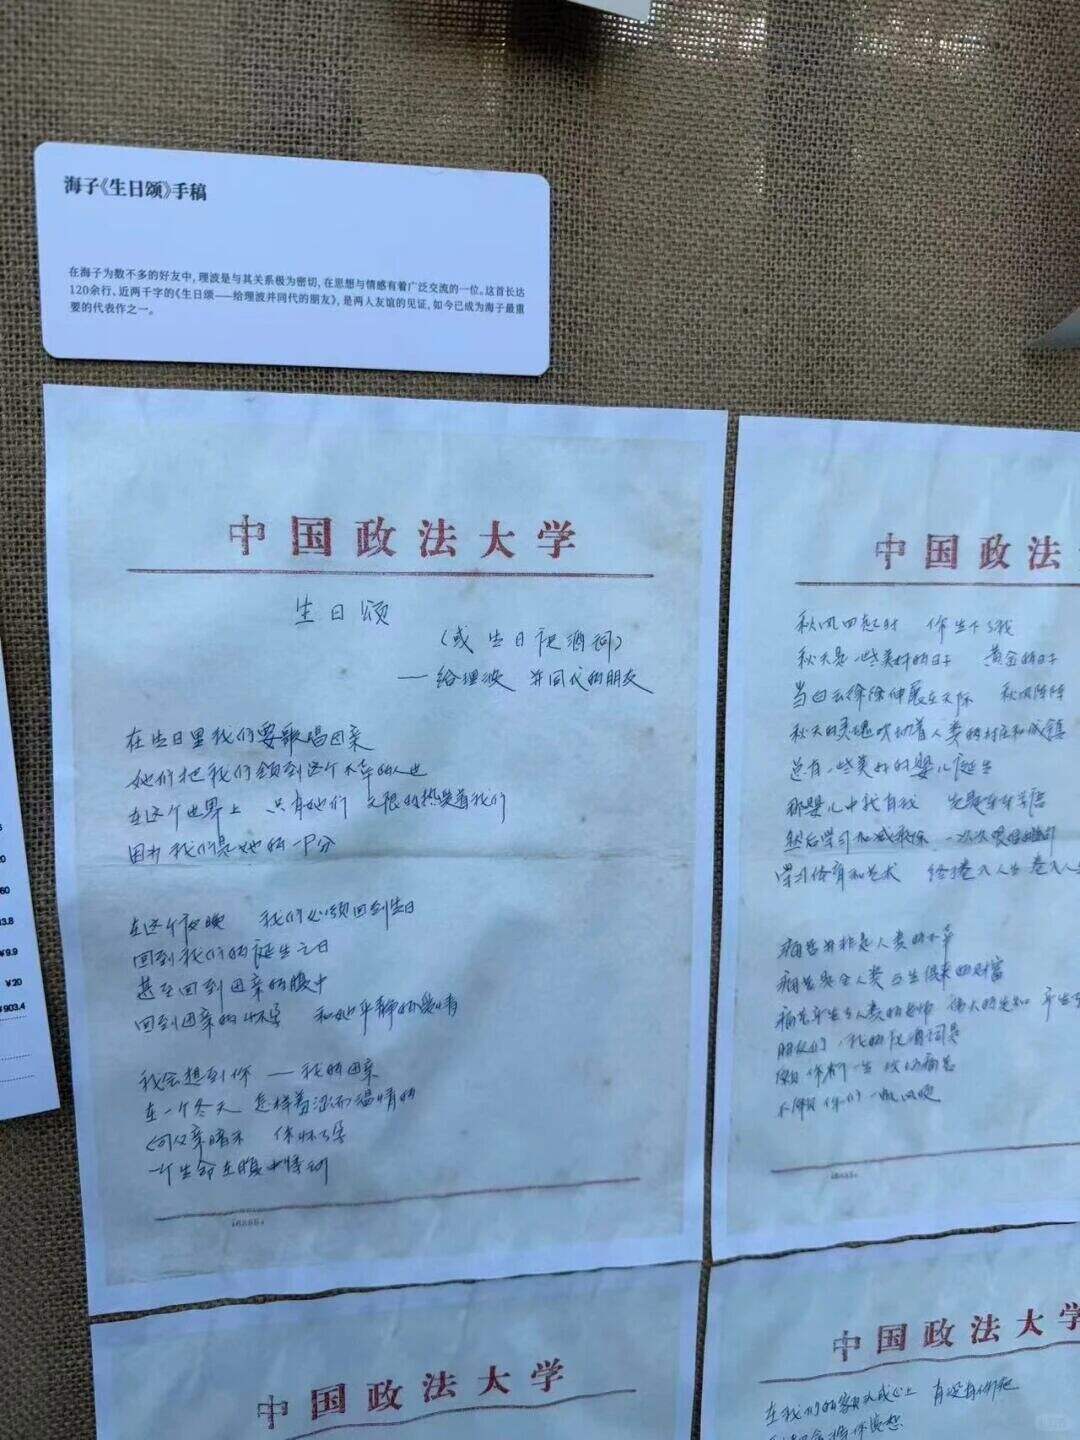 海子《生日颂》手稿
在海子为数不多的好友中，理波是与其关系极为密切，在思想与情感有着广泛交流的一位。这首长达
120余行、近两千字的《生日颂——给理波并同代的朋友》，是两人友谊的见证，如今已成为海子最重
要的代表作之一。
中国政法大学
生日颂
（或生日祝酒词）
——给理波 并同代的朋友
在生日里我们要歌唱母亲
她们把我们领到这个不幸的人世
在这个世界上 只有她们 无限的热爱着我们
因为我们是她的一部分
在这个夜晚 我们必须回到生日
回到我们的诞生之日
甚至回到母亲的腹中
回到母亲的怀孕 和她平静的爱情
我会想到你——我的母亲
在一个冬天 怎样羞涩而温情的
向父亲暗示 你怀了孕
一个生命在腹中悸动
中国政法
秋风四起时 你生下了我
秋天是一些美好的日子 黄金的日子
当白云徐徐伸展在天际 秋风阵阵
秋天的灵魂吹动着人类的村庄和城镇
总有一些美好的婴儿诞生
那婴儿中就有我
然后学习加减乘除
学习体育和艺术
痛苦并非是人类的不幸
痛苦是全人类与生俱来的财富
朋友们，我的祝酒词是
愿你们一生
不愿你们一帆风顺
中国政法大学
中国政法大学
在我们的 有没有你把
3.8
¥9.9
¥20
¥903.4
20
60